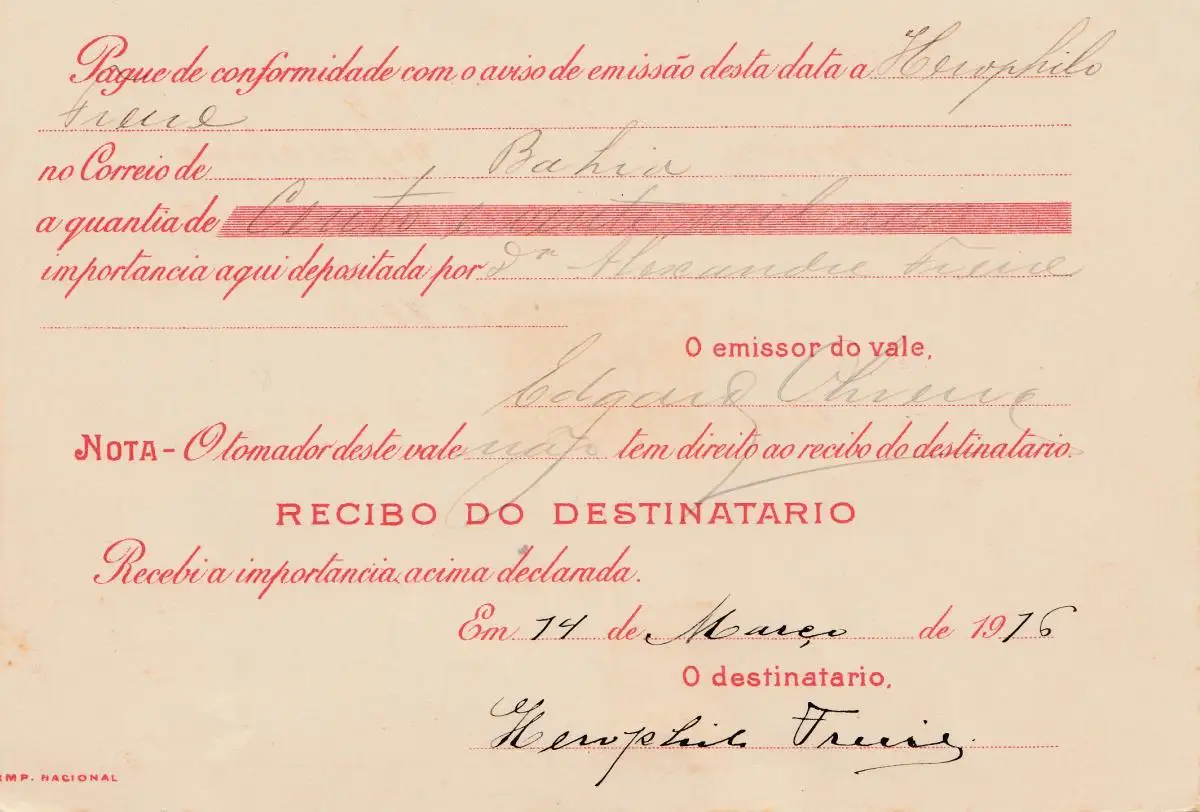 Pague de conformidade com o aviso de emissão desta data a Herophilo
Freire
no Correio de Bahia
a quantia de Cento e vinte mil reis
importancia aqui depositada por Dr Alexandre Freire
O emissor do vale,
Edgard Oliveira
NOTA - O tomador deste vale não tem direito ao recibo do destinatario.
RECIBO DO DESTINATARIO
Recebi a importancia acima declarada.
Em 14 de Março de 1916
O destinatario,
Herophilo Freire
IMP. NACIONAL